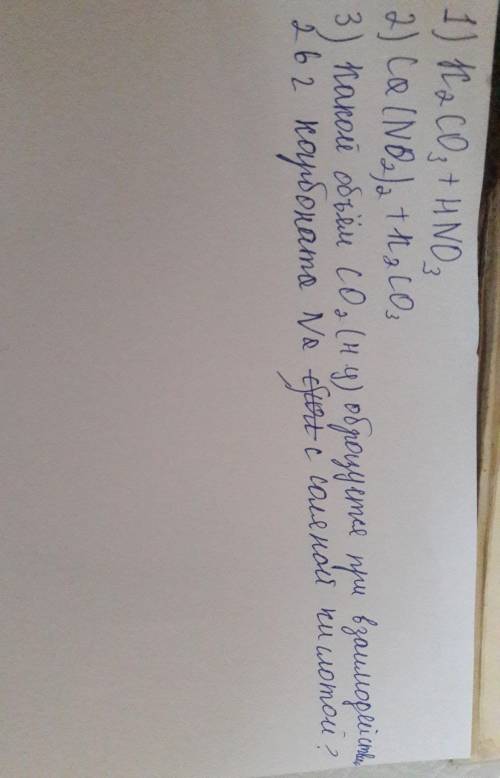 1) K₂CO₃ + HNO₃
2) Ca(NO₂)₂ + K₂CO₃
3) Какой объём CO₂ (н у) образуется при взаимодействии
26 г карбоната Na с соляной кислотой?